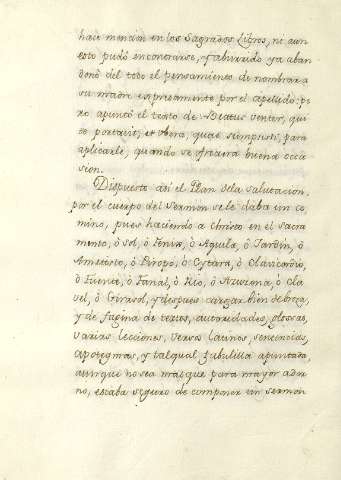 hace mencion en los Sagrados Libros, ni aun
esto pudo encontrarse, y aburrido ya aban
donó del todo el pensamiento de nombrar a
su madre expresamente por el apellido; pe
ro apuntó el texto de Beatus venter, qui
te portavit, et Ubera, quae suxisti, para
aplicarle, quando se ofreciera buena occa
sion.
Dispuesto asi el Plan dela salutacion,
por el cuerpo del Sermon sele daba un co
mino, pues haciendo a Christo en el Sacra
mento, ò Sol, ò Fenix, ò Aguila, ò Jardin, ò
Amatisto, ò Piropo, ò Cytara, ò Clavicordio,
ò Fuente, ò Fanal, ò Rio, ò Azuzena, ò Cla
vel, ò Girasol, y despues cargar bien de broza,
y de fagina de textos, autoridades, glossas,
varias lecciones, versos latinos, sentencias,
apotegmas, y tal qual fabulilla apuntada,
aunque no sea mas que para mayor ador
no, estaba seguro de componer un Sermon